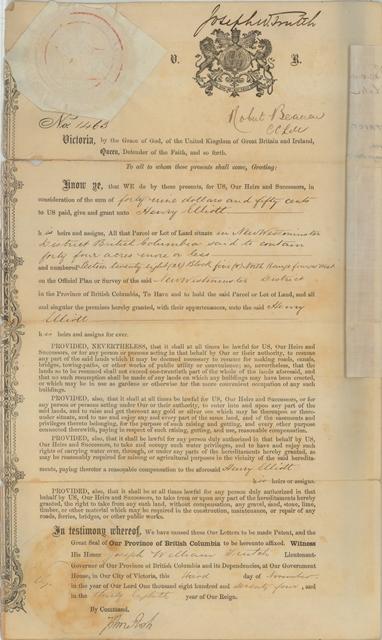 Joseph W. Trutch
V. R.
No. 1463
Robert Beaven
Victoria, by the Grace of God, of the United Kingdom of Great Britain and Ireland,
Queen, Defender of the Faith, and so forth.
To all to whom these presents shall come, Greeting:
Know ye, that WE do by these presents, for US, Our Heirs and Successors, in
consideration of the sum of forty-nine dollars and fifty cents
to US paid, give and grant unto Henry Elliott
his heirs and assigns, All that Parcel or Lot of Land situate in New Westminster
District British Columbia said to contain
forty four acres more or less
and numbered Section twenty eight (28) Block five (5) North Range four West
on the Official Plan or Survey of the said New Westminster District
in the Province of British Columbia, To Have and to hold the said Parcel or Lot of Land, and all
and singular the premises hereby granted, with their appurtenances, unto the said Henry
Elliott
his heirs and assigns for ever.
PROVIDED, NEVERTHELESS, that it shall at all times be lawful for US, Our Heirs
and Successors, or for any person or persons acting in that behalf by Our or their authority, to resume
any part of the said lands which it may be deemed necessary to resume for making roads, canals,
bridges, towing-paths, or other works of public utility or convenience; so, nevertheless, that the
lands so to be resumed shall not exceed one-twentieth part of the whole of the lands aforesaid, and
that no such resumption shall be made of any lands on which any buildings may have been erected,
or which may be in use as gardens or otherwise for the more convenient occupation of any such
buildings.
PROVIDED, also, that it shall at all times be lawful for US, Our Heirs and Successors, or for
any person or persons acting under Our or their authority, to enter into and upon any part of the
said lands, and to raise and get thereout any gold or silver ore which may be thereupon or there-
under situate, and to use and enjoy any and every part of the same land, and of the easements and
privileges thereto belonging, for the purpose of such raising and getting, and every other purpose
connected therewith, paying in respect of such raising, getting, and use, reasonable compensation.
PROVIDED, also, that it shall be lawful for any person duly authorized in that behalf by US,
Our Heirs and Successors, to take and occupy such water privileges, and to have and enjoy such
rights of carrying water over, through, or under any parts of the hereditaments hereby granted, as
may be reasonably required for mining or agricultural purposes in the vicinity of the said heredita-
ments, paying therefor a reasonable compensation to the aforesaid Henry Elliott
his heirs or assigns.
PROVIDED, also, that it shall be at all times lawful for any person duly authorized in that
behalf by US, Our Heirs and Successors, to take from or upon any part of the hereditaments hereby
granted, the right to take from any such land, without compensation, any gravel, sand, stone, lime,
timber, or other material which may be required in the construction, maintenance, or repair of any
roads, ferries, bridges, or other public works.
In testimony whereof, We have caused these Our Letters to be made Patent, and the
Great Seal of Our Province of British Columbia to be hereunto affixed. Witness
His Honor Joseph William Trutch Lieutenant-
Governor of Our Province of British Columbia and its Dependencies, at Our Government
House, in Our City of Victoria, this third day of November
in the year of Our Lord One thousand eight hundred and seventy four, and
in the thirty eighth year of Our Reign.
By Command.
John Ash